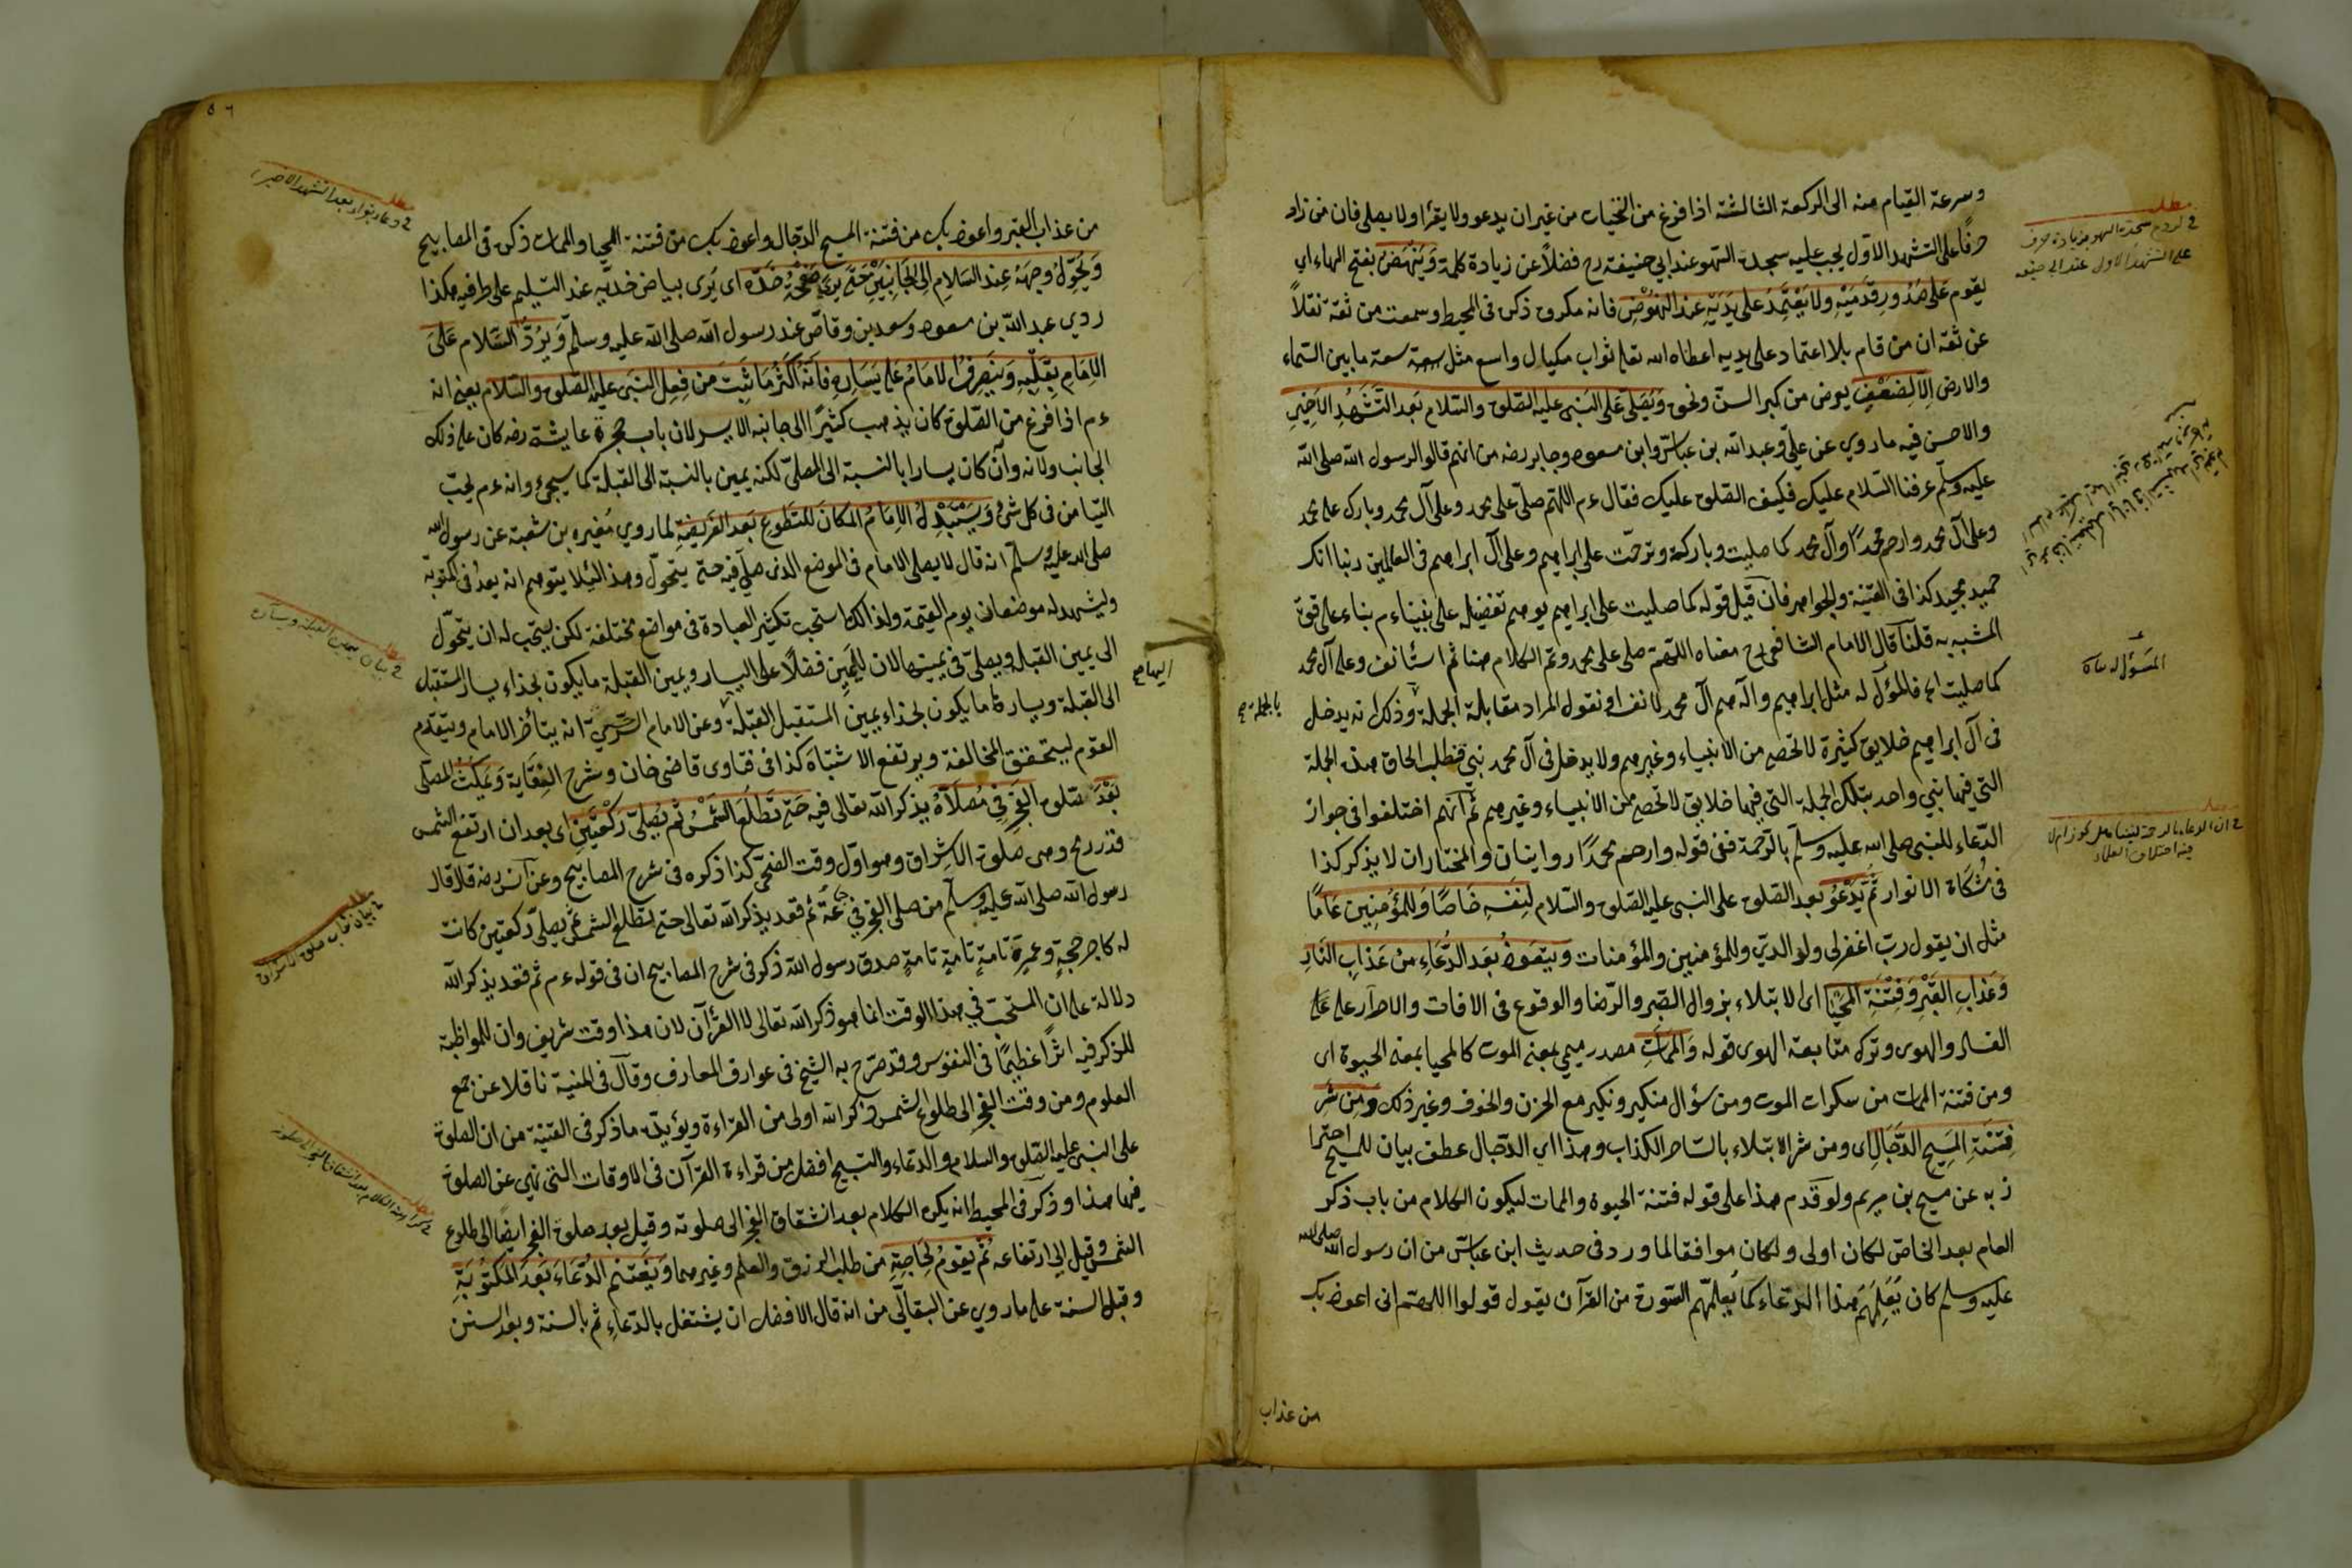 وسرعة القيام منه الى الركعة الثالثة اذا فرغ من التحيات من غير ان يدعو ولا يقرأ ولا يصلى فان من زاد
حرفا على التشهد الاول يجب عليه سجدة السهو عند ابي حنيفة رح فضلاً عن زيادة كلمة وَيَنْهَضُ بفتح الهاء اي
يقوم عَلى صُدُورِ قَدَمَيْهِ ولا يَعْتَمِدُ على يَدَيْهِ عند النُهُوْضِ فانه مكروه ذكره فى المحيط وسمعت من ثقة نقلاً
عن ثقة ان من قام بلا اعتماد على يديه اعطاه الله تعالى ثواب مكيال واسع مثل سعة ما بين السماء
والارض اِلاّ لِضَعْفٍ يعرض من كبر السن ونحوه وَيُصَلِّى عَلَى النَبى عليه الصلوة والسلام بَعد التَشَهُدِ الاَخِيرِ
والاحسن فيه ما روي عن علي وعبد الله بن عباس وابن مسعود وجابر رضه من انهم قالوا لرسول الله صلى الله
عليه وسلم عرفنا السلام عليك فكيف الصلوة عليك فقال ءم اللهم صلّ على محمد وعلى آل محمد وبارك على محمد
وعلى آل محمد وارحم محمدًا وآل محمد كما صليت وباركت وترحمت على ابراهيم وعلى آل ابراهيم فى العالمين ربنا انك
حميد مجيد كذا فى القنية والجواهر فان قيل قوله كما صليت على ابراهيم يوهم تفضيله على نبينا ءم بناء على قوة
المشبه به قلنا قال الامام الشافعى رح معناه اللهم صلى على محمد وتم الكلام هنا ثم استأنف وعلى آل محمد
كما صليت الخ فالمؤل له مثل ابراهيم وآله هم آل محمد لا نفسه او نقول المراد مقابلة الجملة وذلك انه يدخل
فى آل ابراهيم خلايق كثيرة لا تحصى من الانبياء وغيرهم ولا يدخل فى آل محمد نبي فطلب الحاق هذه الجملة
التى فيها نبي واحد بتلك الجملة التي فيها خلايق لا تحصى من الانبياء وغيرهم ثم انهم اختلفوا فى جواز
الدعاء للنبى صلى الله عليه وسلم بالرحمة ففى قوله وارحم محمدًا روايتان والمختار ان لا يذكر كذا
فى مشكاة الانوار ثُمَّ يَدْعُو بعد الصلوة على النبى عليه الصلوة والسلام لِنَفْسِهِ خَاصًا وَلِلمُؤمِنِين عَامًا
مثل ان يقول رب اغفر لى ولوالديّ وللمؤمنين والمؤمنات وَيتَعوذُ بعَد الدُعَاءِ من عَذابِ النَارِ
وَعَذابِ القَبْرِ وَفِتْنَةِ المَحْيَا اى الابتلاء بزوال الصبر والرضا والوقوع فى الافات والاصرار على
الفساد والهوى وترك متابعة الهدى قوله وَالمَمَاتِ مصدر ميمي بمعنى الموت كالمحيا بمعنى الحيوة اى
ومن فتنة الممات من سكرات الموت ومن سؤال منكر ونكير مع الحزن والخوف وغير ذلك وَمِن شَرِ
فِتْنَةِ المَسِيحِ الدَجَالِ اى ومن شر الابتلاء بالساحر الكذاب وهذا اى الدجال عطف بيان للمسيح احترا
زبه عن مسيح بن مريم ولو قدم هذا على قوله فتنة الحيوة والممات ليكون الكلام من باب ذكر
العام بعد الخاص لكان اولى ولكان موافقا لما ورد فى حديث ابن عباس من ان رسول الله صلى الله
عليه وسلم كان يُعَلِمُهُم هذا الدعاء كما يُعلمهم السورة من القرآن يقول قولوا اللهم انى اعوذ بك
من عذاب
مطلب
فى لزوم سجدة السهو بزيادة حرف
على التشهد الاول عند ابى حنيفه
مطلب
فى ان الدعاء بالرحمة لنبينا هل يجوز ام لا
فيه اختلاف العلماء
بالجملة صح
٥٦
من عذاب القبر واعوذ بك من فتنة المسيح الدجال واعوذ بك من فتنة المحيا والممات ذكره فى المصابيح
وَيُحَوِّلُ وجهَهُ عِند السَلامِ اِلى الجَانِبَيْنِ حَتَّى يُرى صَفْحَةُ خَدّه اى يُرى بياض خديه عند التسليم على طرفيه هكذا
روي عبد الله بن مسعود وسعد بن وقاص عند رسول الله صلى الله عليه وسلم وَيَرُدُّ السَلام عَلَى
الاِمَامِ بِقَلْبِهِ وَيَنصَرِفُ الاِمَامُ عَلى يَسَارِهِ فَاِنَّهُ اَكثَرُ مَا ثَبَتَ مِن فِعِل النبَى عليه الصلوة والسلام يعنى انه
ءم اذا فرغ من الصلوة كان يذهب كثيرًا الى جانبه الايسر لان باب حجرة عايشة رضه كان على ذلك
الجانب ولانه وآن كان يسارا بالنسبة الى المصلى لكنه يمين بالنسبة الى القبلة كما سيجئ وانه ءم يحب
التيامن فى كل شئ وَيَسْتَبْدِلُ الاِمَامُ المكَانَ للتَطَوعِ بَعد الفَريضَةِ لما روي مُغيره بن شعبة عن رسول الله
صلى الله عليه وسلم انه قال لا يصلى الامام فى الموضع الذى صلى فيه حتى يتحول وهذا لئلا يتوهم انه بعدُ فى المكتوبة
وليشهد له موضعان يوم القيمة ولذالك استحب تكثير العبادة فى مواضع مختلفة لكن يستحب له ان يتحول
الى يمين القبلة ويصلى فى يمينها لان لليمين فضلاً على اليسار ويمين القبلة ما يكون بحذاء يسار المستقبل
الى القبلة ويسارها ما يكون بحذاء يمين المستقبل القبلة وعن الامام السَرْخسي انه يتأخر الامام ويتقدم
القوم ليتحقق المخالفة ويرتفع الاشتباه كذا فى فتاوى قاضى خان وشرح النِقَاية وَيَمْكُثُ المصلى
بَعْدَ صَلوة الفَجرِ فِى مُصَلاَّهُ يذكر الله تعالى فيه حَتَى تَطلُعَ الشَمْسُ ثُم يُصَلِى رَكْعَتَين اى بعد ان ارتفع الشمس
قدر رمح وهى صلوة الاشراق وهو اول وقت الضحى كذا ذكره فى شرح المصابيح وعن انس رضه قلا قال
رسول الله صلى الله عليه وسلم من صلى الفجر فى جماعة ثم قعد يذكر الله تعالى حتى تطلع الشمس ثم يصلى ركعتين كانت
له كاجر حجة وعمرة تامة تامة تامة صدق رسول الله ذكر فى شرح المصابيح ان فى قوله ءم ثم قعد يذكر الله
دلالة على ان المستحب في هذا الوقت انما هو ذكر الله تعالى لا القرآن لان هذا وقت شريف وان للمواظبة
للذكر فيه اثرًا عَظِيمًا فى النفوس وقد صرّح به الشيخ فى عوارف المعارف وقال فى المنية ناقلا عن جمع
العلوم ومن وقت الفجر الى طلوع الشمس ذكر الله اولى من القراءة ويؤيده ما ذكر فى القنية من ان الصلوة
على النبى عليه الصلوة والسلام والدعاء والتسبيح افضل من قراءة القرآن فى الاوقات التى نهي عن الصلوة
فيها هذا وذكر فى المحيط انه يكره الكلام بعد انشقاق الفجر الى صلوته وقيل بعد صلوة الفجر ايضا الى طلوع
الشمس وقيل الى ارتفاعه ثُمَّ يَقومُ لِحَاجَتِهِ من طلب الرزق والعلم وغيرهما وَيَغْتَنِم الدُعَاءَ بَعْدَ المَكتُوبَةِ
وقبل السنة على ما روي عن البقالى من انه قال الافضل ان يشتغل بالدعاء ثم بالسنة وبعد السنن
مطلب
فى دعاء يقرأ بعد التشهد الاخير
مطلب
فى بيان يمين القبلة ويساره
مطلب
فى بيان ثواب صلوة الاشراق
مطلب
اليها صح